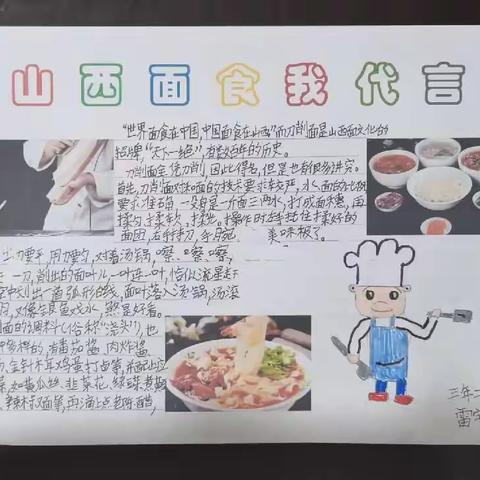 山西面食我代言
"世界面食在中国,中国面食在山西"而刀削面是山西面文化的
招牌,"天下一绝"有数百年的历史。
刀削面全凭刀削,因此得名,但是也有很多讲究。
首先,刀削面对和面的技术要求较严,水、面的比例
要求准确,一般是一斤面三两水,打成面穗,再
揉匀揉柔软,揉光。操作时左手托住揉好的
面团,右手持刀,手腕
美味极了。
出力要平,用力要匀,对着汤锅,嚓、嚓、嚓,
一刀,削出的面叶儿一叶连一叶,恰似流星赶
空中划出一道弧形的线,面叶落入汤锅,汤滚
又像银鱼戏水,煞是好看。
面的调料(俗称"浇头"),也
多样的,有番茄酱、肉炸酱、
金针木耳鸡蛋打卤等,并配上应
菜,如黄瓜丝、韭菜花、绿豆
辣椒面等,再滴上点老陈醋,
三年二
雷